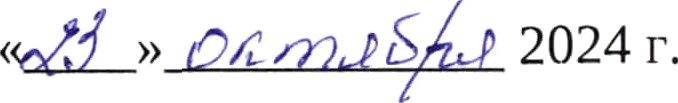 «23» октября 2024 г.